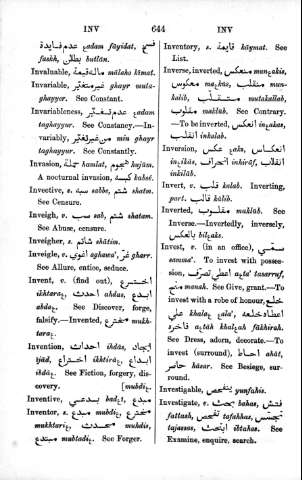 INV 644 INV
عدم فایدة ʿadam fāyidat, فسخ
fuskh, بطلان butlān.
Invaluable, ماله قیمة mālahu kīmat.
Invariable, غیر متغیّر ghayr muta-
ghayyar. See Constant.
Invariableness, عدم تغیّر ʿadam
taghayyur. See Constancy.—In-
variably, من غیر تغیّر min ghayr
taghayyur. See Constantly.
Invasion, حملة hamlat, هجوم hujūm.
A nocturnal invasion, كبسة kabsé.
Invective, s. سب sabbe, شتم shatm.
See Censure.
Inveigh, v. سب sab, شتم shatam.
See Abuse, censure.
Inveigher, s. شاتم shātim.
Inveigle, v. اغوی aghawaʾ, غر gharr.
See Allure, entice, seduce.
Invent, v. (find out), اخترع
ikhtaraʿ, احدث ahdas, ابدع
abdaʿ. See Discover, forge,
falsify.—Invented, مخترع mukh-
taraʿ.
Invention, احداث ahdās, ایجاد
ījād, اختراع ikhtirāʿ, ابداع
ibdāʿ. See Fiction, forgery, dis-
covery. [mubdiʿ.
Inventive, بدعی badʿī, مبدع
Inventor, s. مبدع mubdiʿ, مخترع
mukhtariʿ, محدث muhdis,
مبتدع mubtadiʿ. See Forger.
Inventory, s. قایمة kāymat. See
List.
Inverse, inverted, منعكس munʿakis,
معكوس maʿkūs, منقلب mun-
kalib, متقلب mutakallab,
مقلوب maklūb. See Contrary.
—To be inverted, انعكس inʿakas,
انقلب inkalab.
Inversion, عكس ʿaks, انعكاس
inʿikās, انحراف inhirāf, انقلاب
inkilāb.
Invert, v. قلب kalab. Inverting,
part. قالب kālib.
Inverted, مقلوب maklūb. See
Inverse.—Invertedly, inversely,
بالعكس bilʿaks.
Invest, v. (in an office), سمی
samma'. To invest with posses-
sion, اعطی تصرف aʿta' tasarruf,
منع manah. See Give, grant.—To
invest with a robe of honour, خلع
علی khalaʿ ʿala', اعطاه خلعة
فاخرة aʿtāh khalʿah fākhirah.
See Dress, adorn, decorate.—To
invest (surround), احاط ahāt,
حاصر hāsar. See Besiege, sur-
round.
Investigable, ینفحص yunfahis.
Investigate, v. بحث bahas, فتش
fattash, تفحص tafahhas, تجسس
tajassas, ابتحث ibtahas. See
Examine, enquire, search.